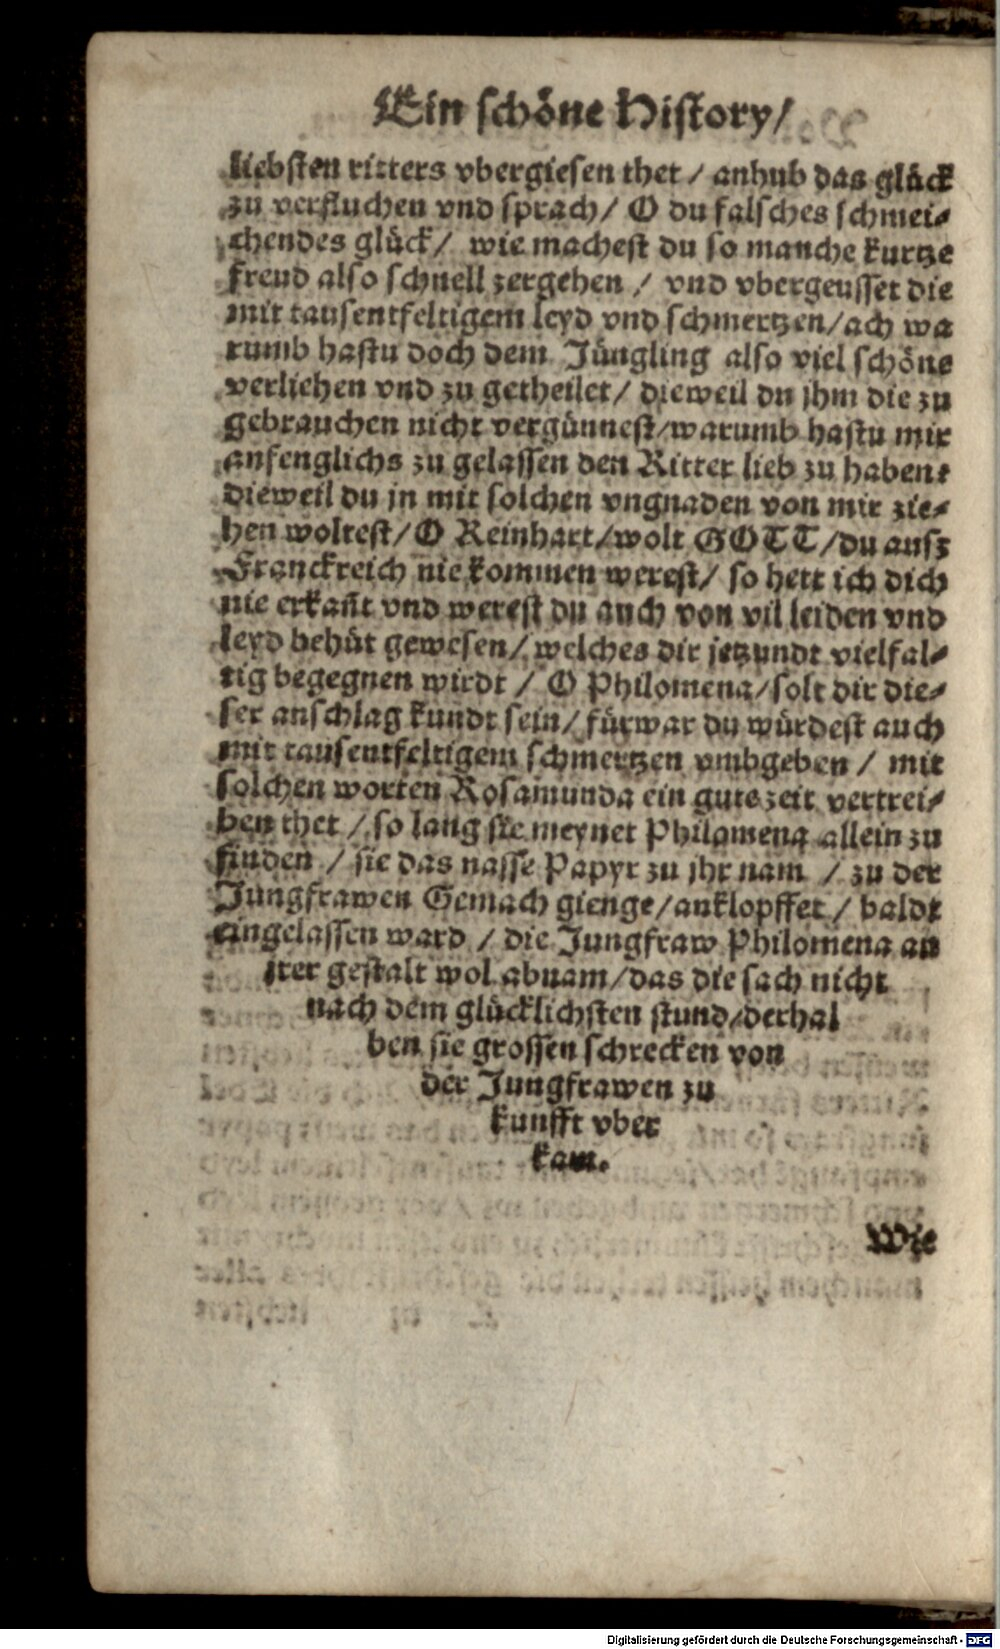 Ein schöne History/
liebsten ritters vbergiesen thet / anhub das glück
zu verfluchen vnd sprach/ O du falsches schmei-
chendes glück/ wie machest du so manche kurtze
freud also schnell zergehen / vnd vbergeusset die
mit tausentfeltigem leyd vnd schmertzen/ach wa
rumb hastu doch dem Jüngling also viel schöne
verliehen vnd zu getheilet/ dieweil du jhm die zu
gebrauchen nicht vergünnest/warumb hastu mir
anfenglichs zu gelassen den Ritter lieb zu haben?
dieweil du jn mit solchen vngnaden von mir zie-
hen woltest/O Reinhart/wolt GOTT/du ausz
Franckreich nie kommen werest/ so hett ich dich
nie erkañt vnd werest du auch von vil leiden vnd
leyd behüt gewesen/ welches dir jetzundt vielfal-
tig begegnen wirdt / O Philomena/solt dir die-
ser anschlag kundt sein/ fürwar du würdest auch
mit tausentfeltigem schmertzen vmbgeben / mit
solchen worten Rosamunda ein gute zeit vertrei-
ben thet / so lang sie meynet Philomena allein zu
finden / sie das nasse Papyr zu jhr nam / zu der
Jungfrawen Gemach gienge/anklopffet / baldt
eingelassen ward / die Jungfraw Philomena an
jrer gestalt wol abnam/das die sach nicht
nach dem glücklichsten stund/derhal
ben sie grossen schrecken von
der Jungfrawen zu
kunfft vber
kam.
Wie
Digitalisierung gefördert durch die Deutsche Forschungsgemeinschaft - DFG